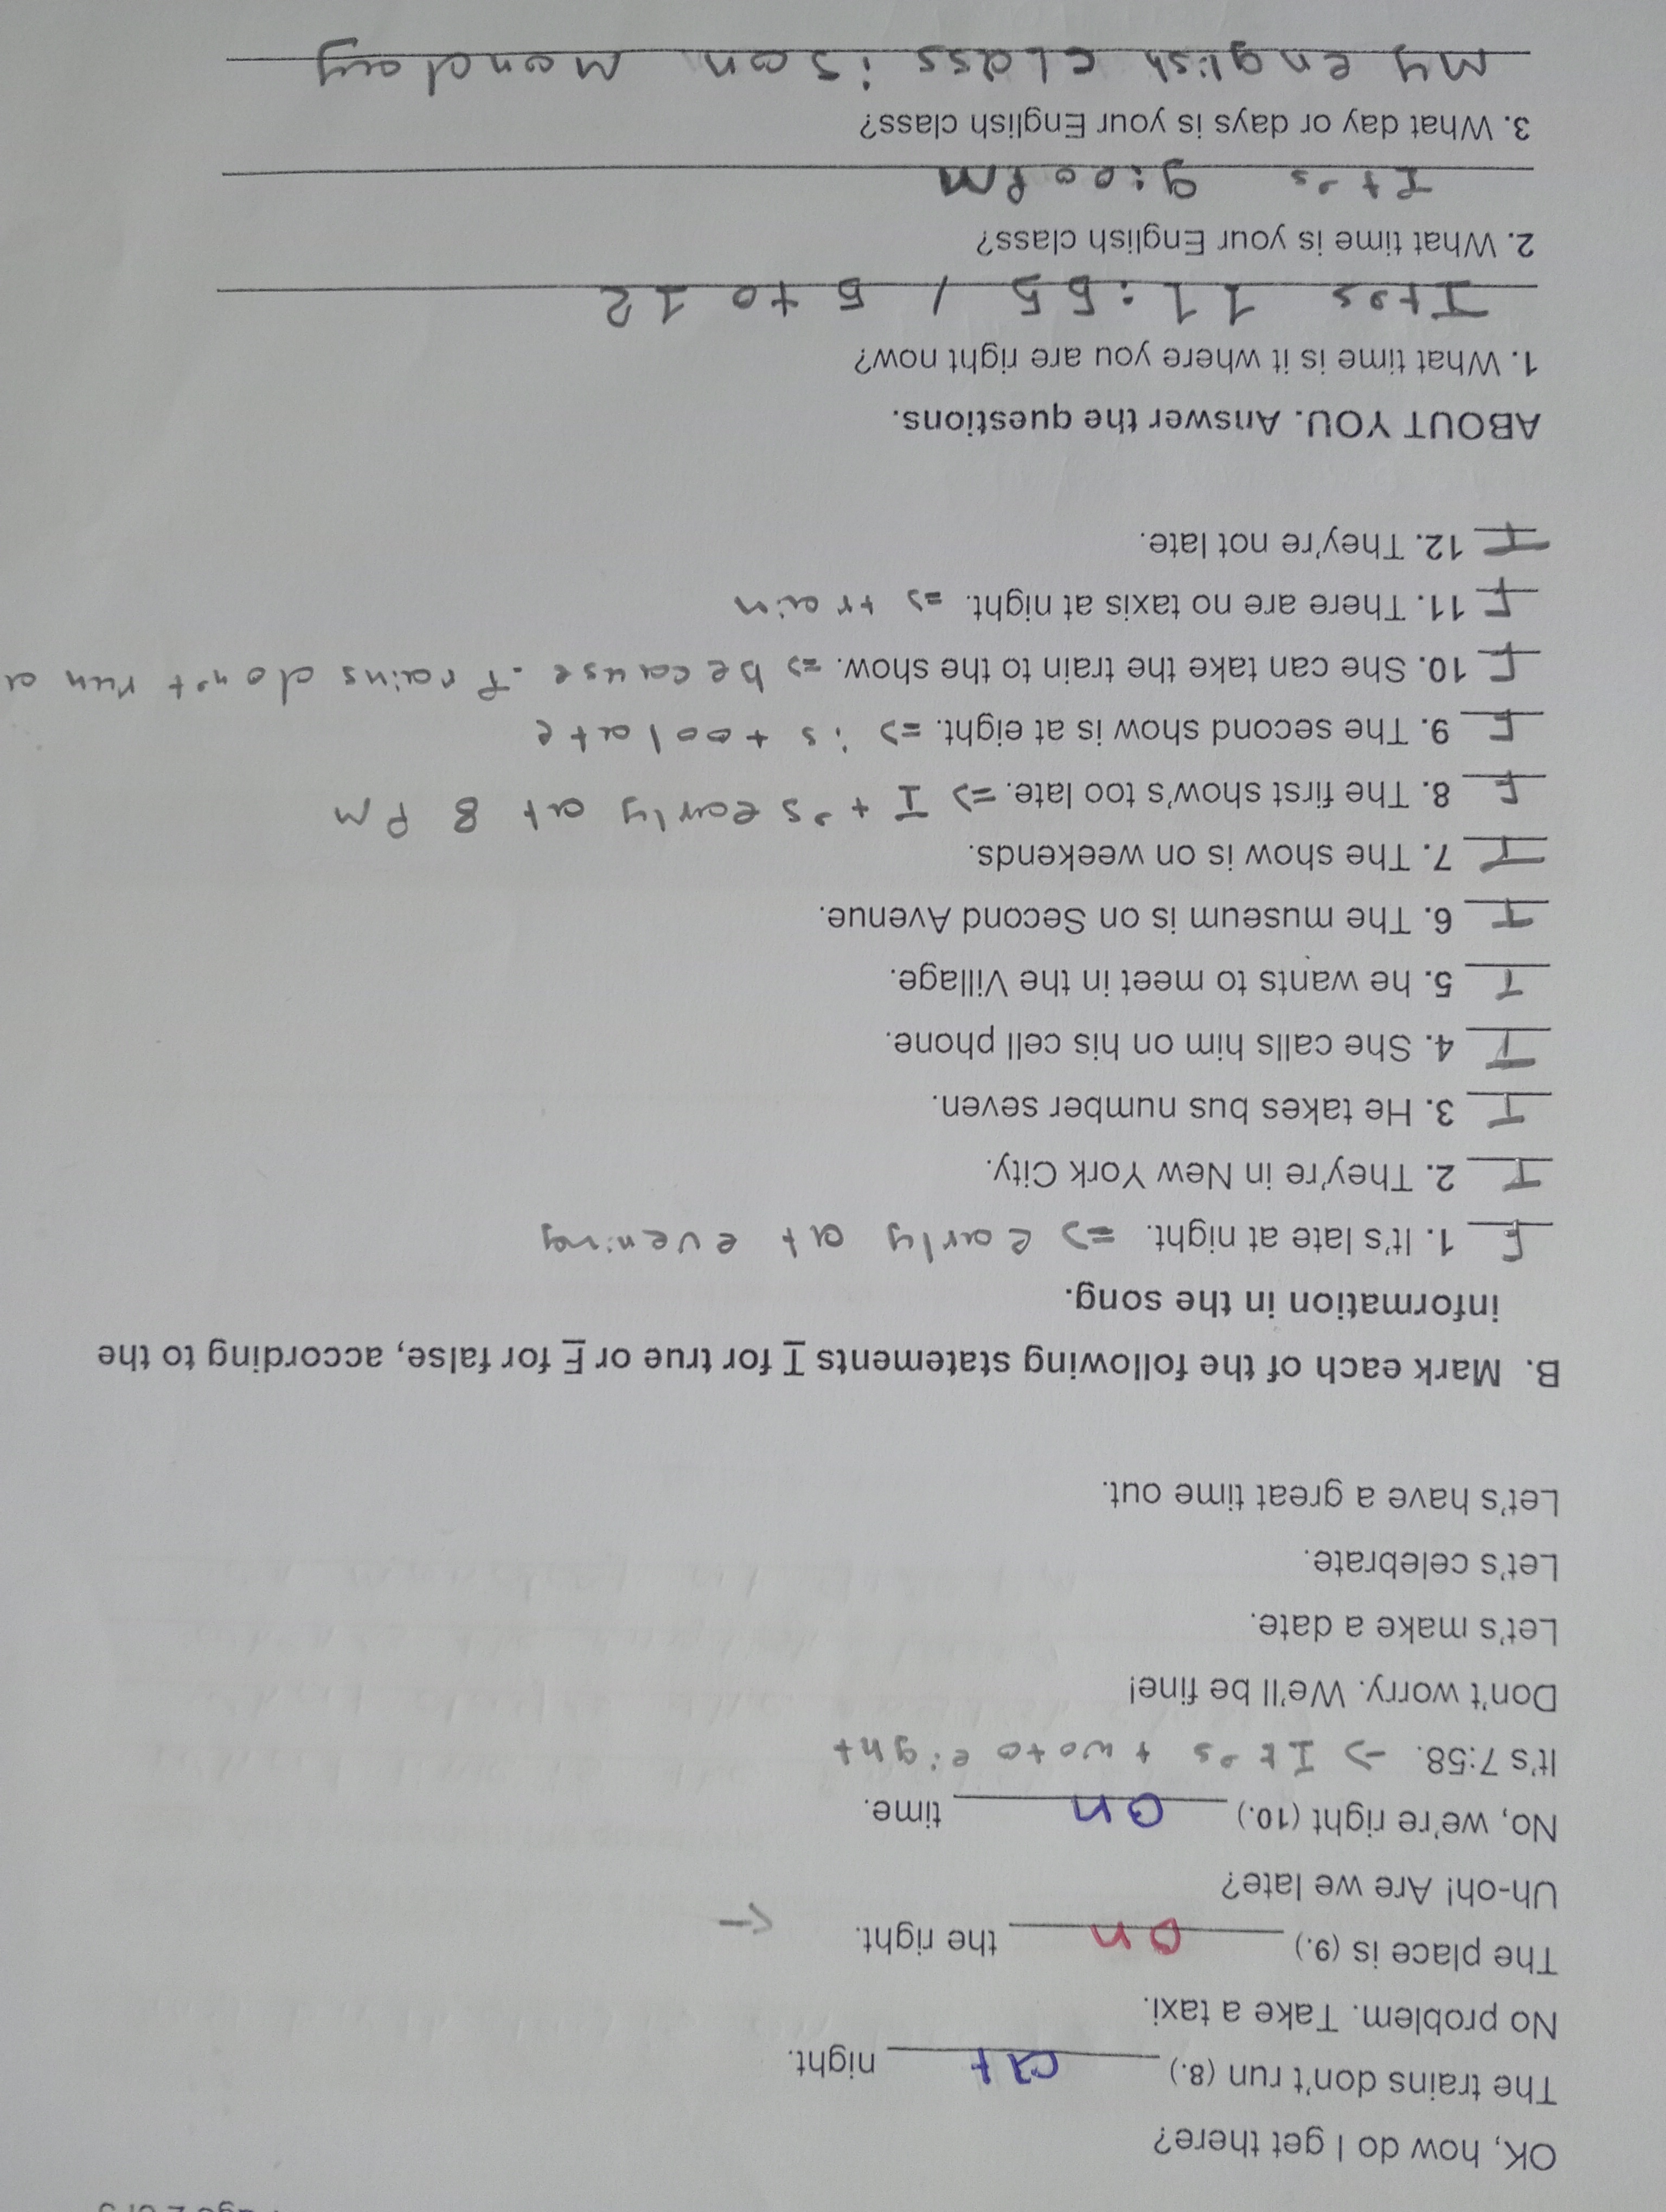 OK, how do I get there?
The trains don't run (8.) at night.
No problem. Take a taxi.
The place is (9.) on the right. ←
Uh-oh! Are we late?
No, we're right (10.) on time.
It's 7:58. → It's two to eight
Don't worry. We'll be fine!
Let's make a date.
Let's celebrate.
Let's have a great time out.
B. Mark each of the following statements T for true or F for false, according to the
information in the song.
F 1. It's late at night. => early at evening
T 2. They're in New York City.
T 3. He takes bus number seven.
T 4. She calls him on his cell phone.
T 5. he wants to meet in the Village.
T 6. The museum is on Second Avenue.
T 7. The show is on weekends.
F 8. The first show's too late. => It's early at 8 PM
F 9. The second show is at eight. => is too late
F 10. She can take the train to the show. => because. Trains don't run a
F 11. There are no taxis at night. => train
T 12. They're not late.
ABOUT YOU. Answer the questions.
1. What time is it where you are right now?
It's 11:55 / 5 to 12
2. What time is your English class?
It's 9:00 PM
3. What day or days is your English class?
My english class is on Monday